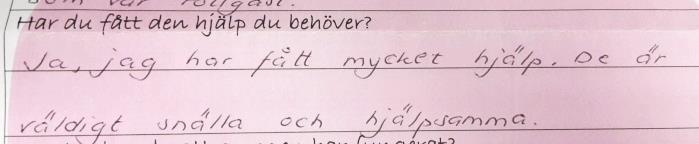 Har du fått den hjälp du behöver?
Ja, jag har fått mycket hjälp. De är
väldigt snälla och hjälpsamma.